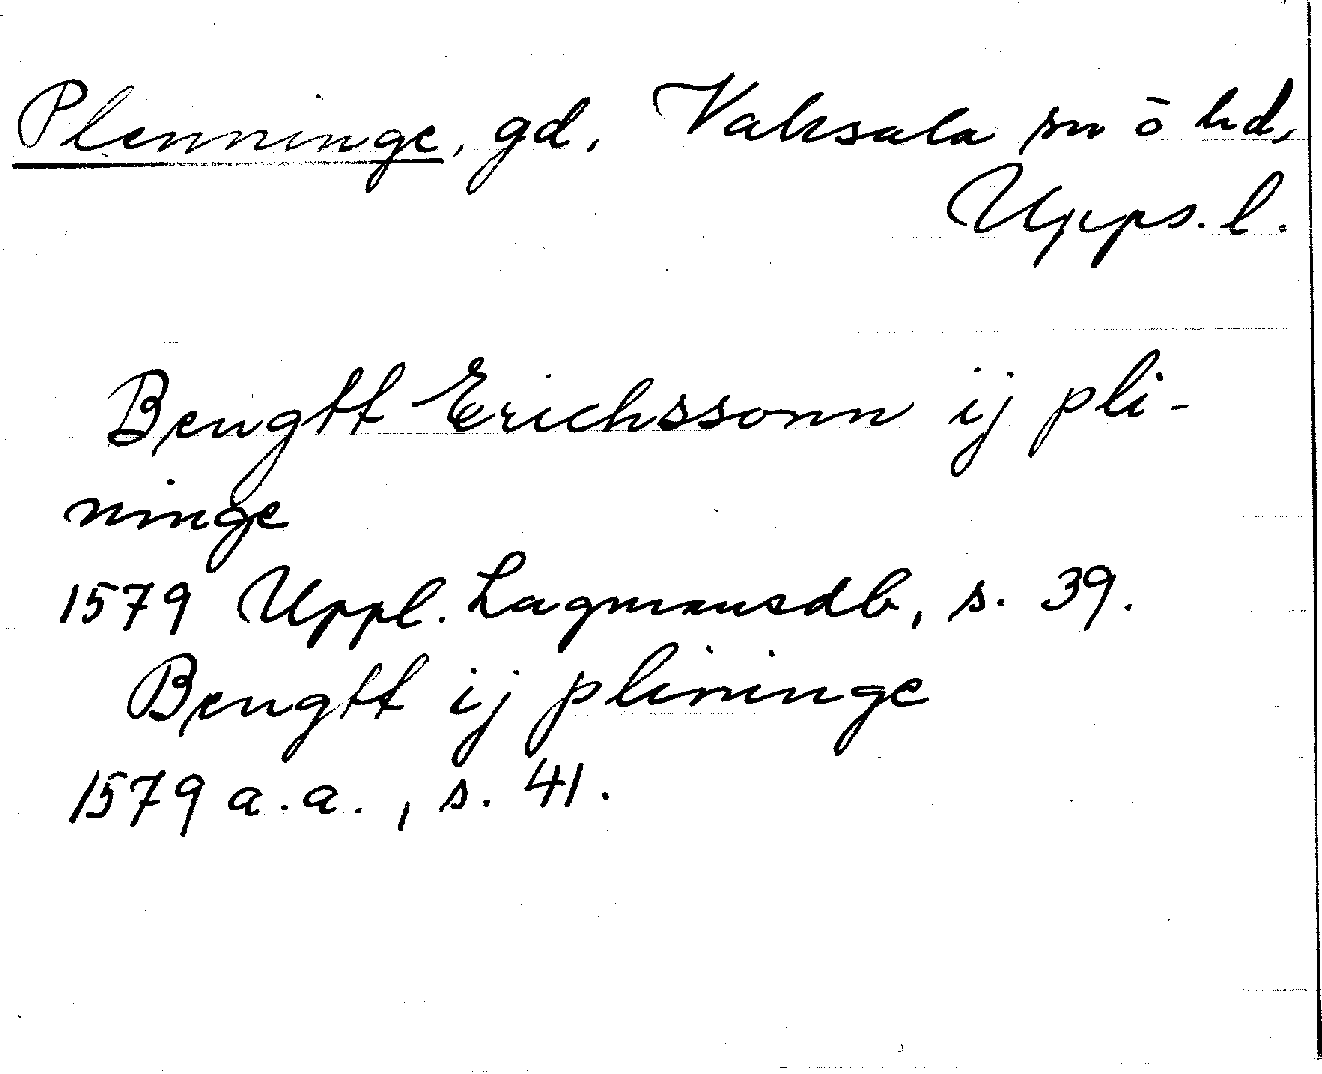 Plenninge, gd. Vaksala sn o hd,
Upps. l.
Bengtt Erichssonn ij pli-
ninge
1579 Uppl. Lagmansdb, s. 39.
Bengtt ij plininge
1579 a.a., s. 41.